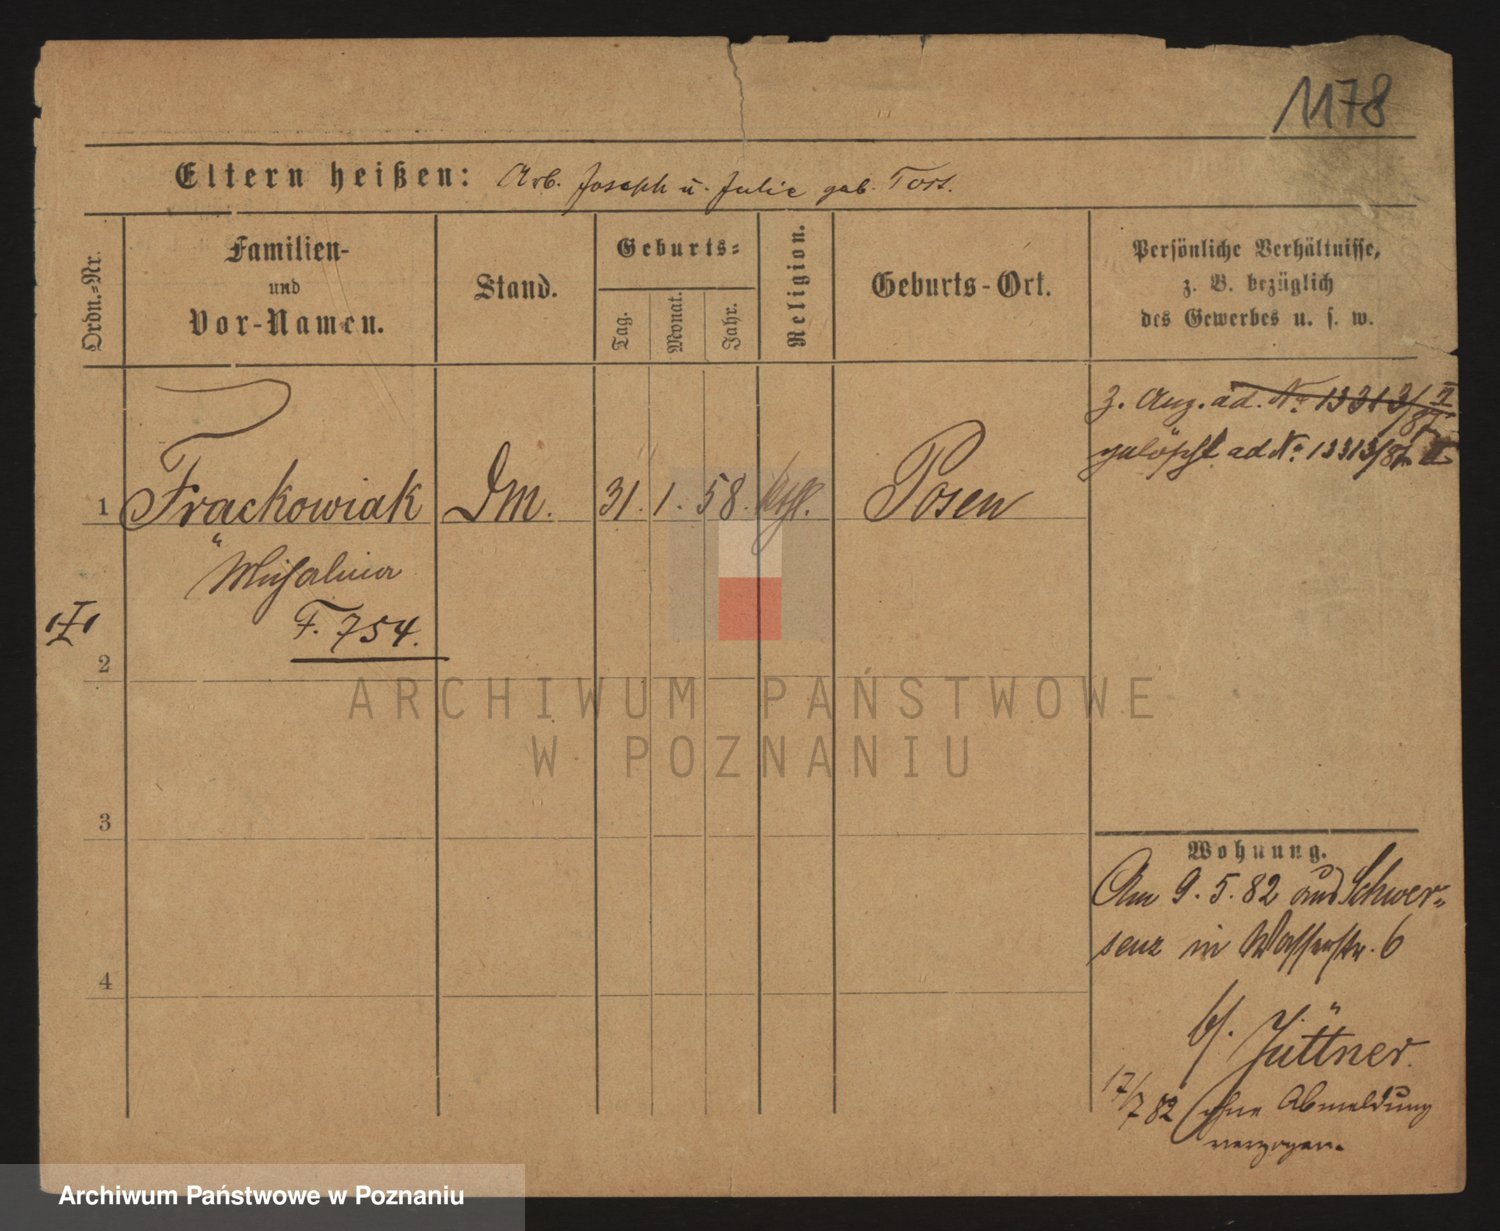 1178
Eltern heißen: Arb. Joseph u. Julie geb. Tort.
Ordn.-Nr.
Familien-
und
Vor-Namen.
Stand.
Geburts-
Tag.
Monat.
Jahr.
Religion.
Geburts-Ort.
Persönliche Verhältnisse,
z. B. bezüglich
des Gewerbes u. s. w.
z. Aug. ad. No 13313/87 II
gelöscht ad No 13313/87 II
1 Frackowiak DM. 31. 1. 58. kath. Posen
Michalina
F. 754.
I
2
3
4
Wohnung.
Am 9.5.82 aus Schwer-
senz in Wasserstr. 6
b/. Jüttner.
17/7 82 ohne Abmeldung
verzogen.
ARCHIWUM PAŃSTWOWE
W POZNANIU
Archiwum Państwowe w Poznaniu